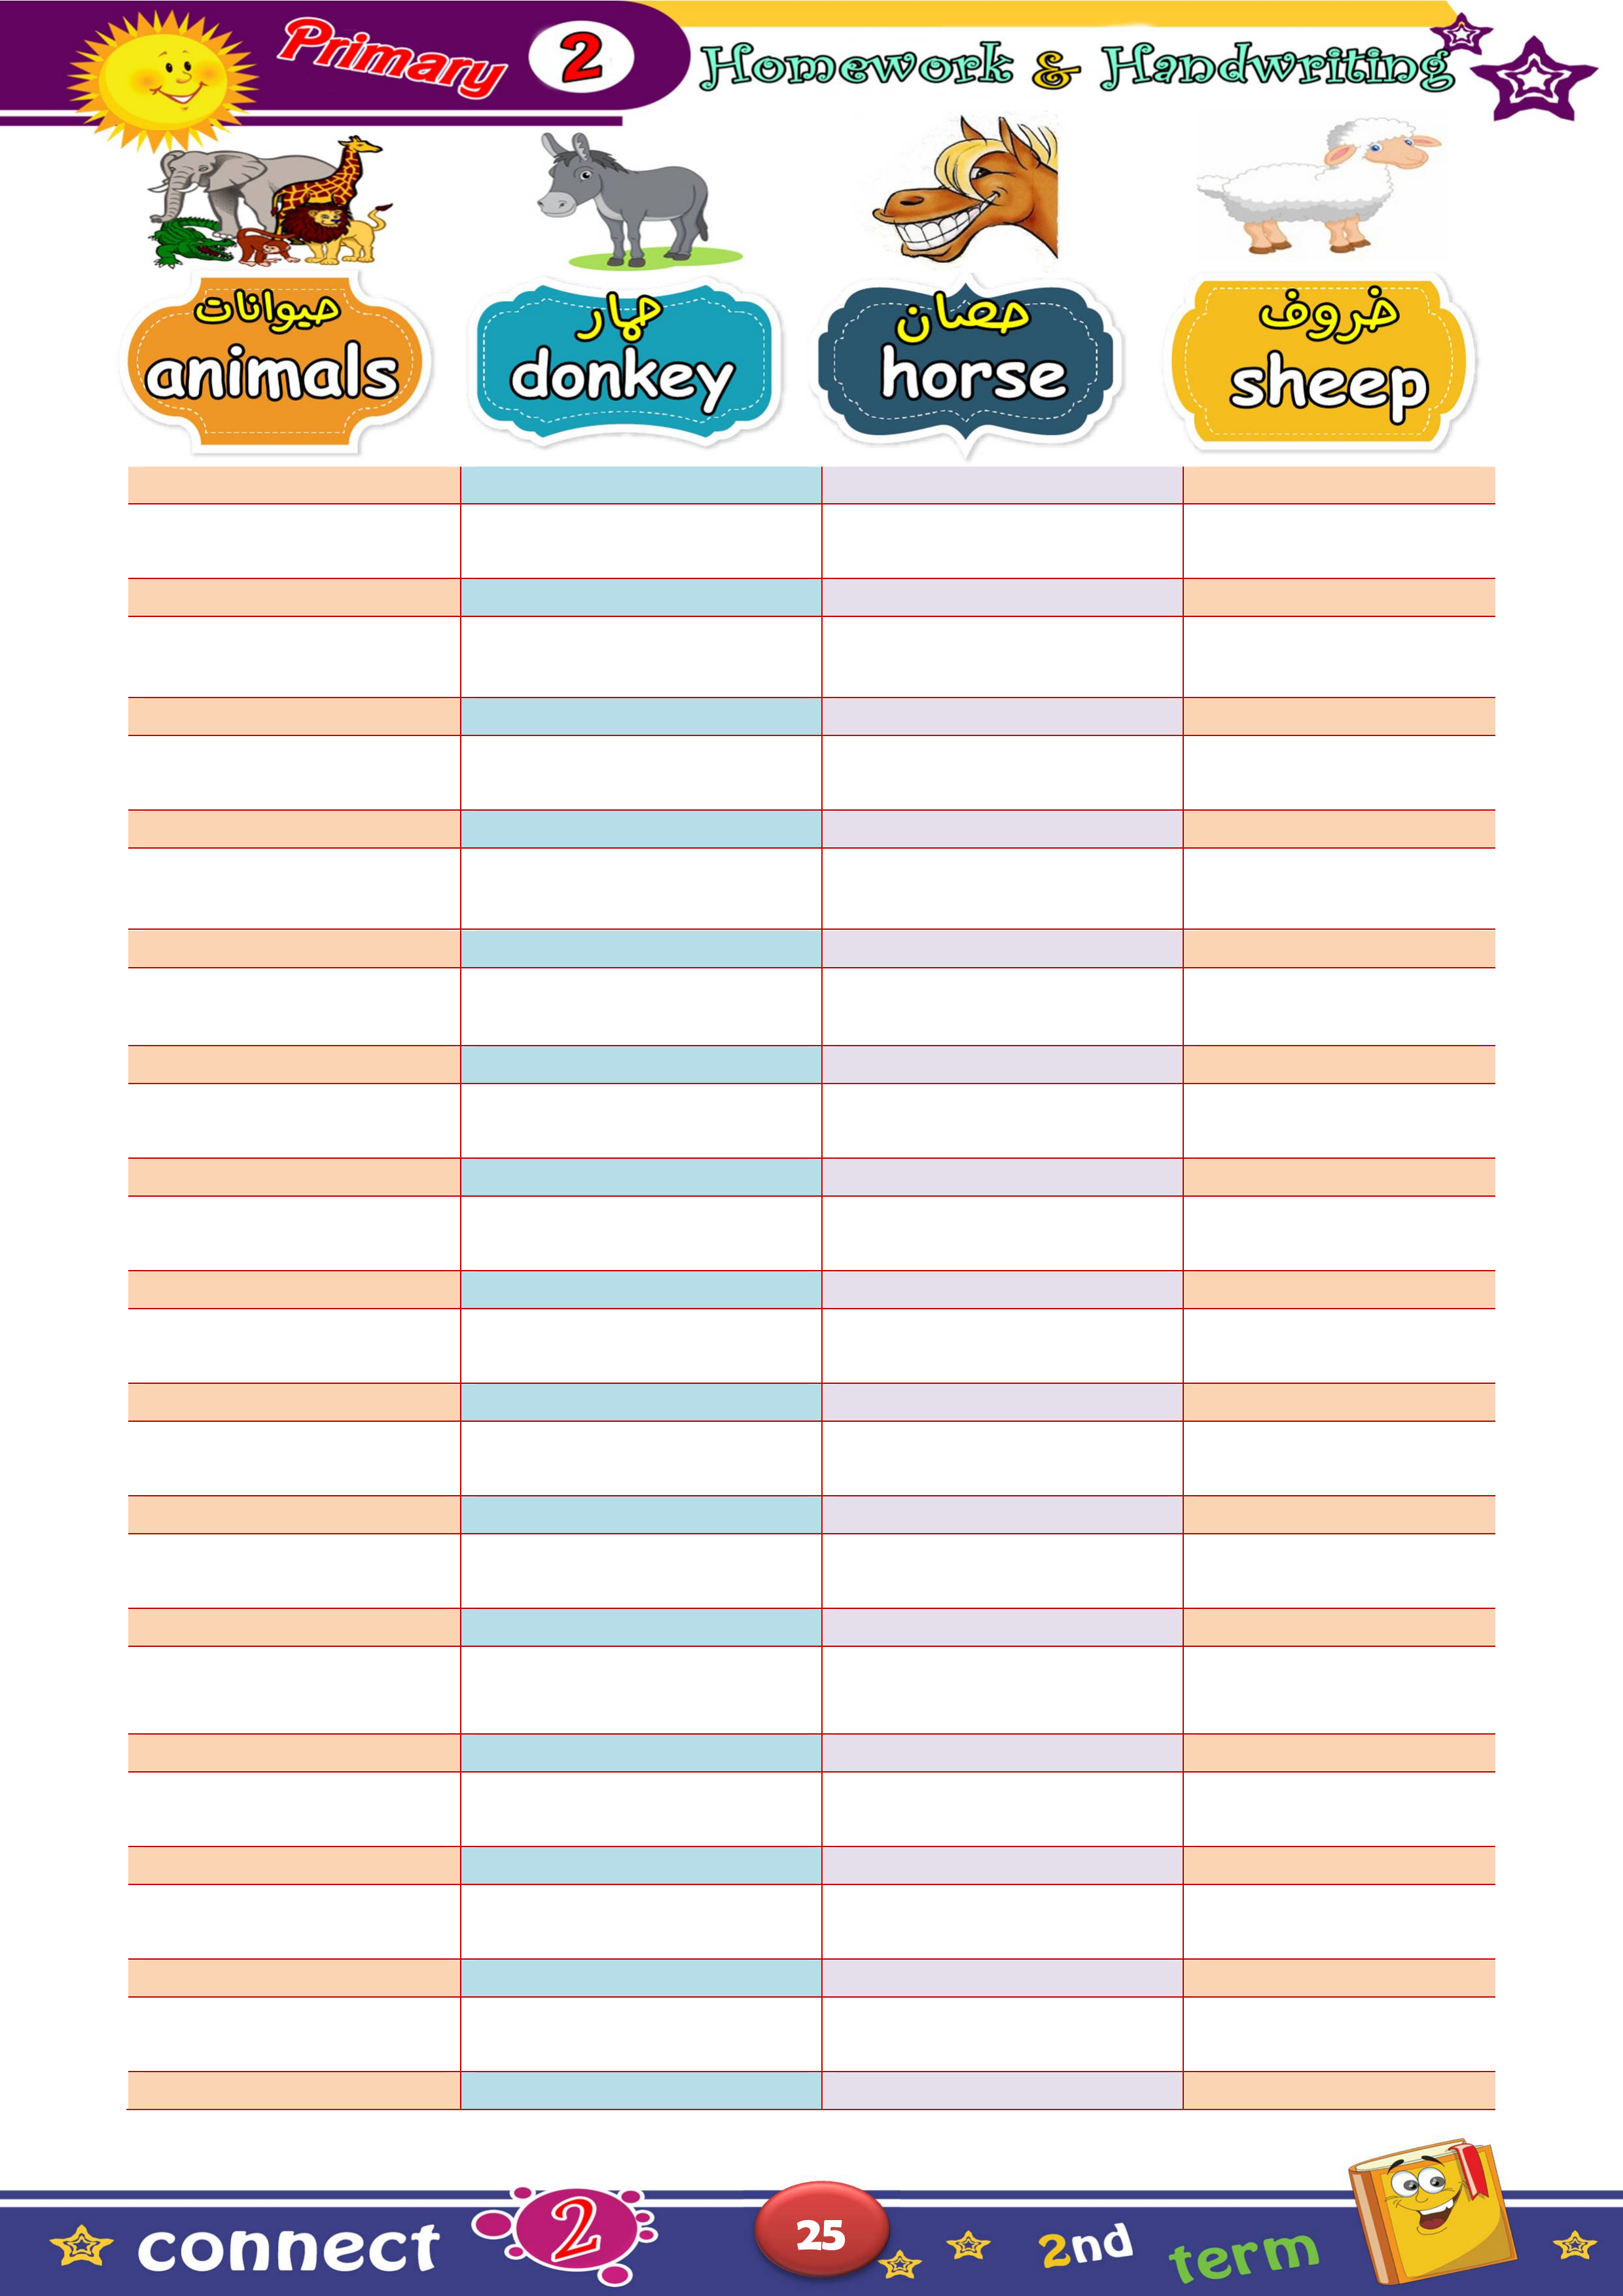 Primary 2 Homework & Handwriting
حيوانات
animals
حمار
donkey
حصان
horse
خروف
sheep
connect 2 25 2nd term